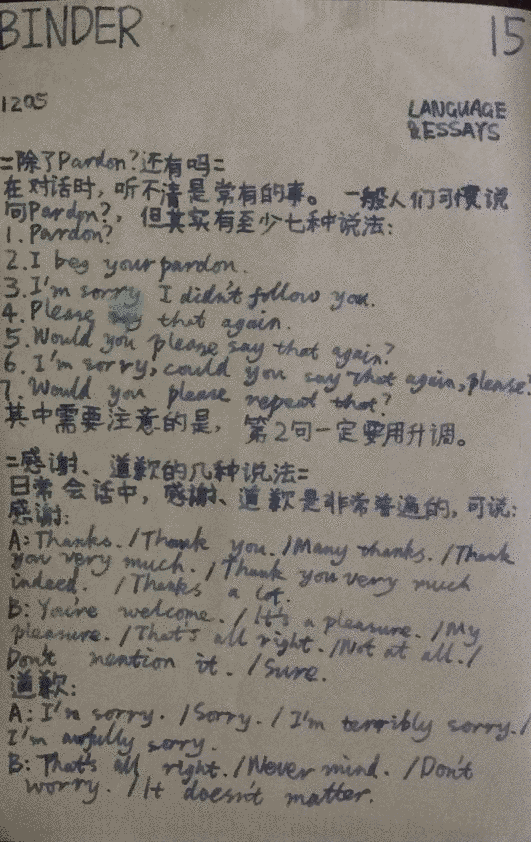 BINDER 15
1205 LANGUAGE
&ESSAYS
=除了Pardon?还有吗=
在对话时，听不清是常有的事。 一般人们习惯说
句Pardon?，但其实有至少七种说法：
1. Pardon?
2. I beg your pardon.
3. I'm sorry I didn't follow you.
4. Please say that again.
5. Would you please say that again?
6. I'm sorry, could you say that again, please?
7. Would you please repeat that?
其中需要注意的是， 第2句一定要用升调。
=感谢、道歉的几种说法=
日常会话中，感谢、道歉是非常普遍的，可说：
感谢：
A: Thanks. /Thank you. /Many thanks. /Thank
you very much. /Thank you very much
indeed. /Thanks a lot.
B: You're welcome. /It's a pleasure. /My
pleasure. /That's all right. /Not at all. /
Don't mention it. /Sure.
道歉：
A: I'm sorry. /Sorry. /I'm terribly sorry. /
I'm awfully sorry.
B: That's all right. /Never mind. /Don't
worry. /It doesn't matter.